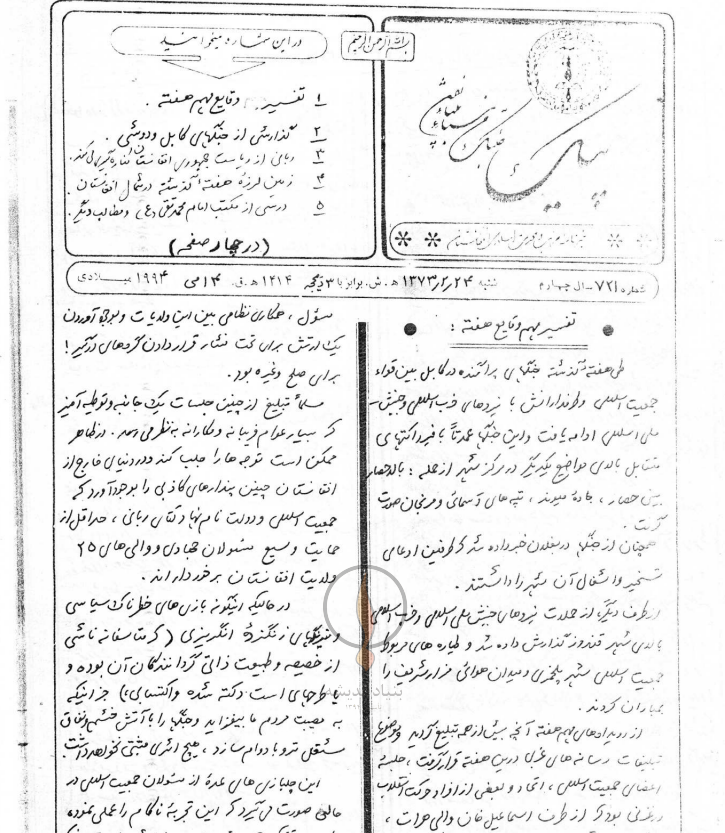 بسم الله الرحمن الرحیم
پیک
شماره ۷۲۱ - سال چهارم شنبه ۲۴ ۱۳۷۳ ه . ش. برابر با ۳ ذیحجه ۱۴۱۴ ه . ق. ۱۴ می ۱۹۹۴ میلادی
در این شماره میخوانید
۱ تفسیر وقایع مهم هفته .
۲ گذارشی از جنگهای کابل و دوشی .
۳ ربانی از ریاست جمهوری افغانستان کناره گیری میکند.
۴ زمین لرزهٔ هفتهٔ گذشته در شمال افغانستان .
۵ درسی از مکتب امام محمد تقی (ع) و مطالب دیگر.
(در چهار صفحه)
تفسیر مهم وقایع هفته :
طی هفته گذشته جنگهای پراگنده در کابل بین قواء
جمعیت اسلامی و طرفدارانش با نیروهای حزب اسلامی و جنبش
ملی اسلامی ادامه یافت و این جنگها عمدتاً با فیر راکتهای
متقابل بالای مواضع یکدیگر در مرکز شهر از جمله : بالاحصار
بین حصار ، جاده میوند ، تپه های آسمائی و مرنجان صورت
گرفت .
همچنان از جنگها در بغلان خبر داده شد که طرفین ادعای
تسخیر و اشغال آن شهر را داشتند .
از طرف دیگر، از حملات نیروهای جنبش ملی اسلامی و حزب اسلامی
بالای شهر قندوز گذارش داده شد و طیاره های مربوط
جمعیت اسلامی شهر پلخمری و میدان هوائی مزار شریف را
بمباران کردند .
از رویدادهای مهم هفته آنچه بیش از همه تبلیغ گردید و موضوع
تبلیغات رسانه های غربی درین هفته قرار گرفت ، جلسه
اعضای جمعیت اسلامی ، اتحاد و بعضی از افراد حرکت انقلاب
بود که از طرف اسماعیل خان والی هرات ،
مسئول ، همکاری نظامی بین این ولایات و بوجود آوردن
یک ارتش برای تحت فشار قرار دادن گروهای درگیر !
برای صلح و غیره بود .
مسلماً تبلیغ از چنین جلسات یک جانبه و توطئه آمیز
کر بسیار عوام فریبانه و مکارانه به نظر می رسد . در ظاهر
ممکن است توجه ها را جلب کند و در دنیای خارج از
افغانستان چنین پندارهای کاذبی را بوجود آورد که
جمعیت اسلامی و دولت نام نهاد آقای ربانی ، حداقل از
حمایت وسیع مسئولان جهادی و والی های ۲۵
ولایت افغانستان برخوردار اند .
در حالیکه اینگونه بازی های خطرناک سیاسی
و نیرنگهای انگریزی ( که متاسفانه ناشی
از خصیصه و طبیعت ذاتی گردانندگان آن بوده و
یا طرحهای است دکته شده واکتسابی) جز اینکه
به مصیبت مردم ما بیفزاید و جنگها را با آتش خشم و نفاق
مشتعل تر و با دوام سازد ، هیچ اثری مثبتی نخواهد داشت
این چلبازی های عدهٔ از مسئولان جمعیت اسلامی در
حالی صورت می گیرد که این تجربهٔ ناکام را عملی نموده